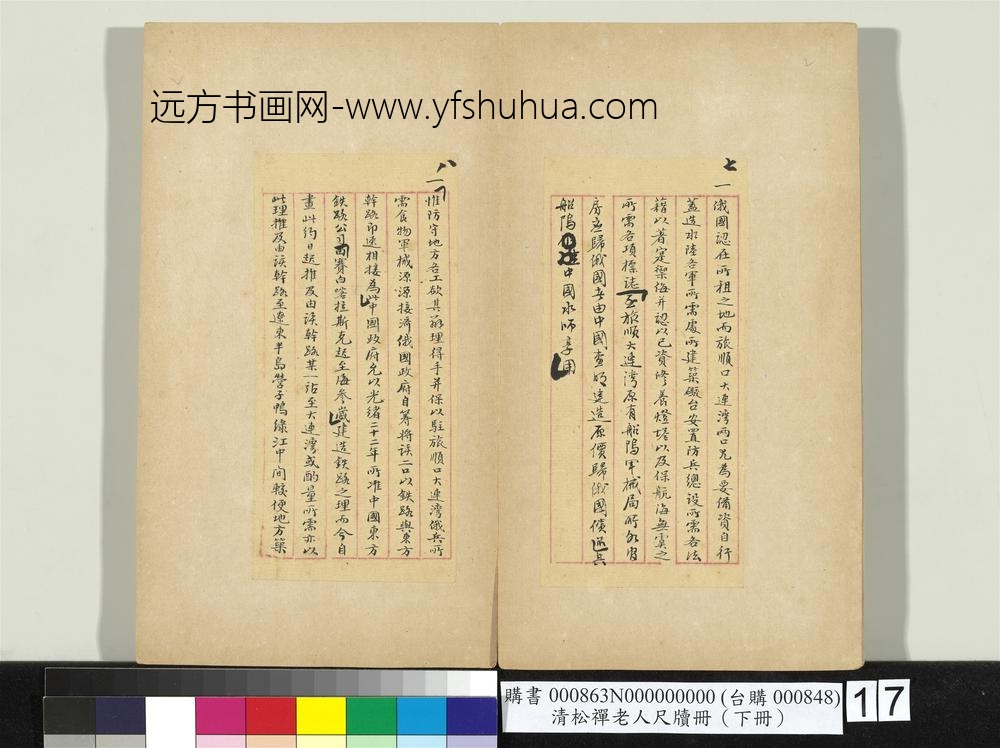 远方书画网-www.yfshuhua.com
七
一俄國認在所租之地而旅順口大連灣兩口尤為要備資自行
蓋造水陸各軍所需處所建築礮台安置防兵總設所需各法
藉以著寔禦侮并認以己資修養燈塔以及保航海無虞之
所需各項標誌至旅順大連灣原有船隖軍械局所
房應歸俄國者由中國查明建造原價歸俄國償還兵
船隖中國水師享用
八
一惟防守地方各工欲其辦理得手并保以駐旅順口大連灣俄兵所
需食物軍械源源接濟俄國政府自籌將該二口以鉄路與東方
幹路即速相接為此中國政府允以光緒二十二年所准中國東方
鉄路公司由賽白喀拉斯克起至海參崴建造鉄路之理而今自
畫此約日起推及由該幹路某一站至大連灣或酌量所需亦以
此理推及由該幹路至遼東半島營子鴨綠江中間較便地方築
購書 000863N000000000 (台購 000848)
清松禪老人尺牘冊（下冊）
17